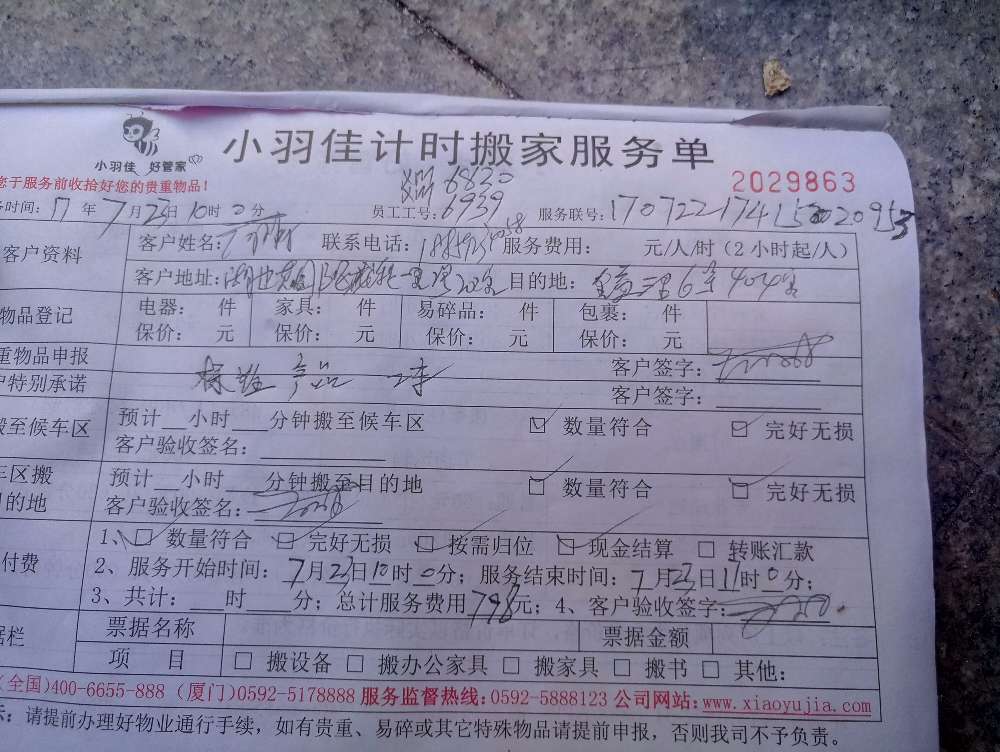 小羽佳 好管家
小羽佳计时搬家服务单
您于服务前收拾好您的贵重物品!
2029863
6830
务时间: 17 年 7 月 23 日 10 时 0 分 员工工号: 6939 服务联号:
客户资料 客户姓名: 联系电话: 服务费用: 元/人/时 (2 小时起/人)
客户地址: 目的地: 6 4042
物品登记 电器: 件 家具: 件 易碎品: 件 包裹: 件
保价: 元 保价: 元 保价: 元 保价: 元
重物品申报 客户签字:
户特别承诺 客户签字:
搬至候车区 预计 小时 分钟搬至候车区 数量符合 完好无损
客户验收签名:
车区搬 预计 小时 分钟搬至目的地 数量符合 完好无损
目的地 客户验收签名:
1、 数量符合 完好无损 按需归位 现金结算 转账汇款
付费 2、服务开始时间: 7 月 23 日 10 时 0 分; 服务结束时间: 7 月 23 日 11 时 0 分;
3、共计: 时 分; 总计服务费用 798 元; 4、客户验收签字:
据栏 票据名称 票据金额
项 目 搬设备 搬办公家具 搬家具 搬书 其他:
(全国)400-6655-888 (厦门)0592-5178888 服务监督热线:0592-5888123 公司网站:www.xiaoyujia.com
示: 请提前办理好物业通行手续, 如有贵重、易碎或其它特殊物品请提前申报, 否则我司不予负责。